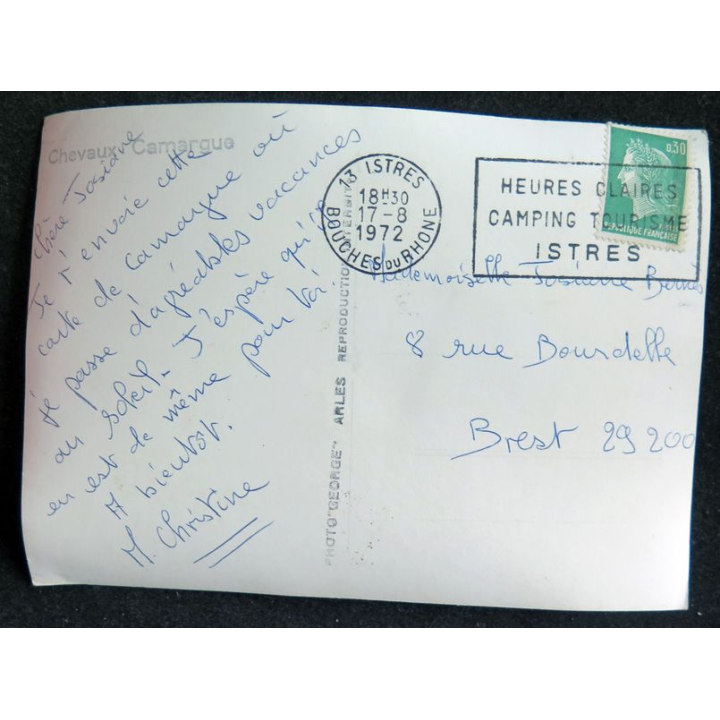 Chevaux Camargue
Chère Josiane
Je t'envoie cette
carte de camargue où
je passe d'agréables vacances
au soleil. J'espère qu'il
en est de même pour toi.
A bientôt.
M. Christine
PHOTO "GEORGE" ARLES REPRODUCTION INTERDITE
13 ISTRES
18H30
17-8
1972
BOUCHES DU RHONE
HEURES CLAIRES
CAMPING TOURISME
ISTRES
0,30
REPUBLIQUE FRANÇAISE
Mademoiselle Josiane
8 rue Bourdelle
Brest 29 200